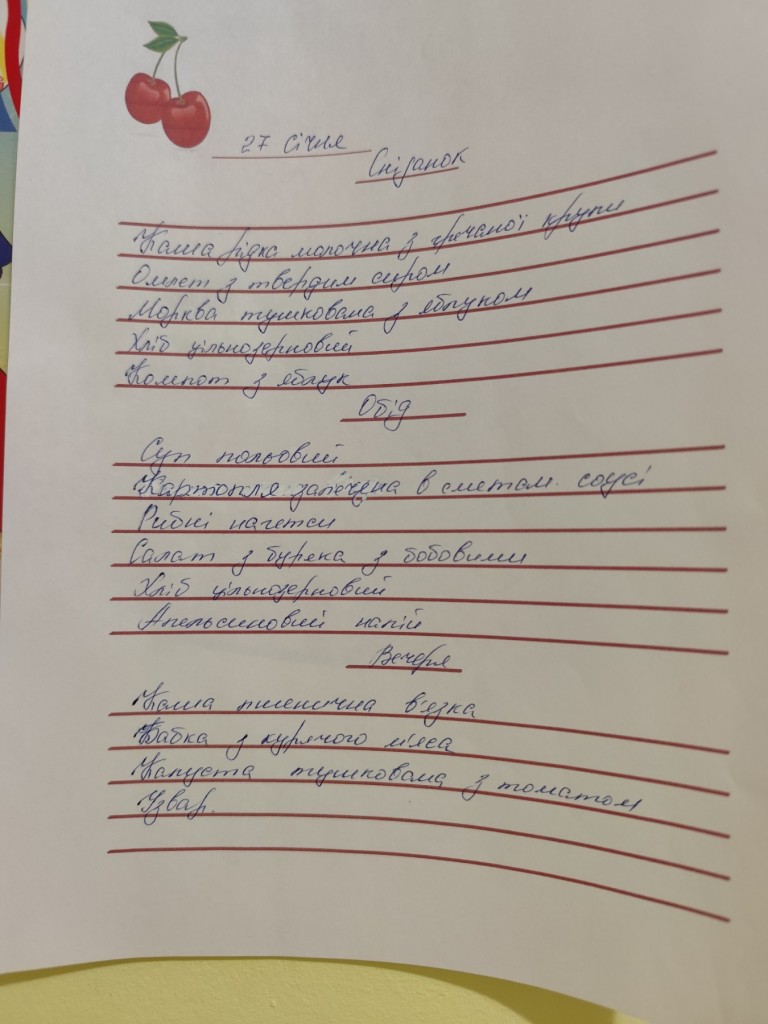 27 січня
Сніданок
Каша рідка молочна з гречаної крупи
Омлет з твердим сиром
Морква тушкована з яблуком
Хліб цільнозерновий
Компот з яблук
Обід
Суп польовий
Картопля запечена в сметан. соусі
Рибні нагетси
Салат з буряка з бобовими
Хліб цільнозерновий
Апельсиновий напій
Вечеря
Каша пшенична в'язка
Бабка з курячого м'яса
Капуста тушкована з томатом
Узвар.